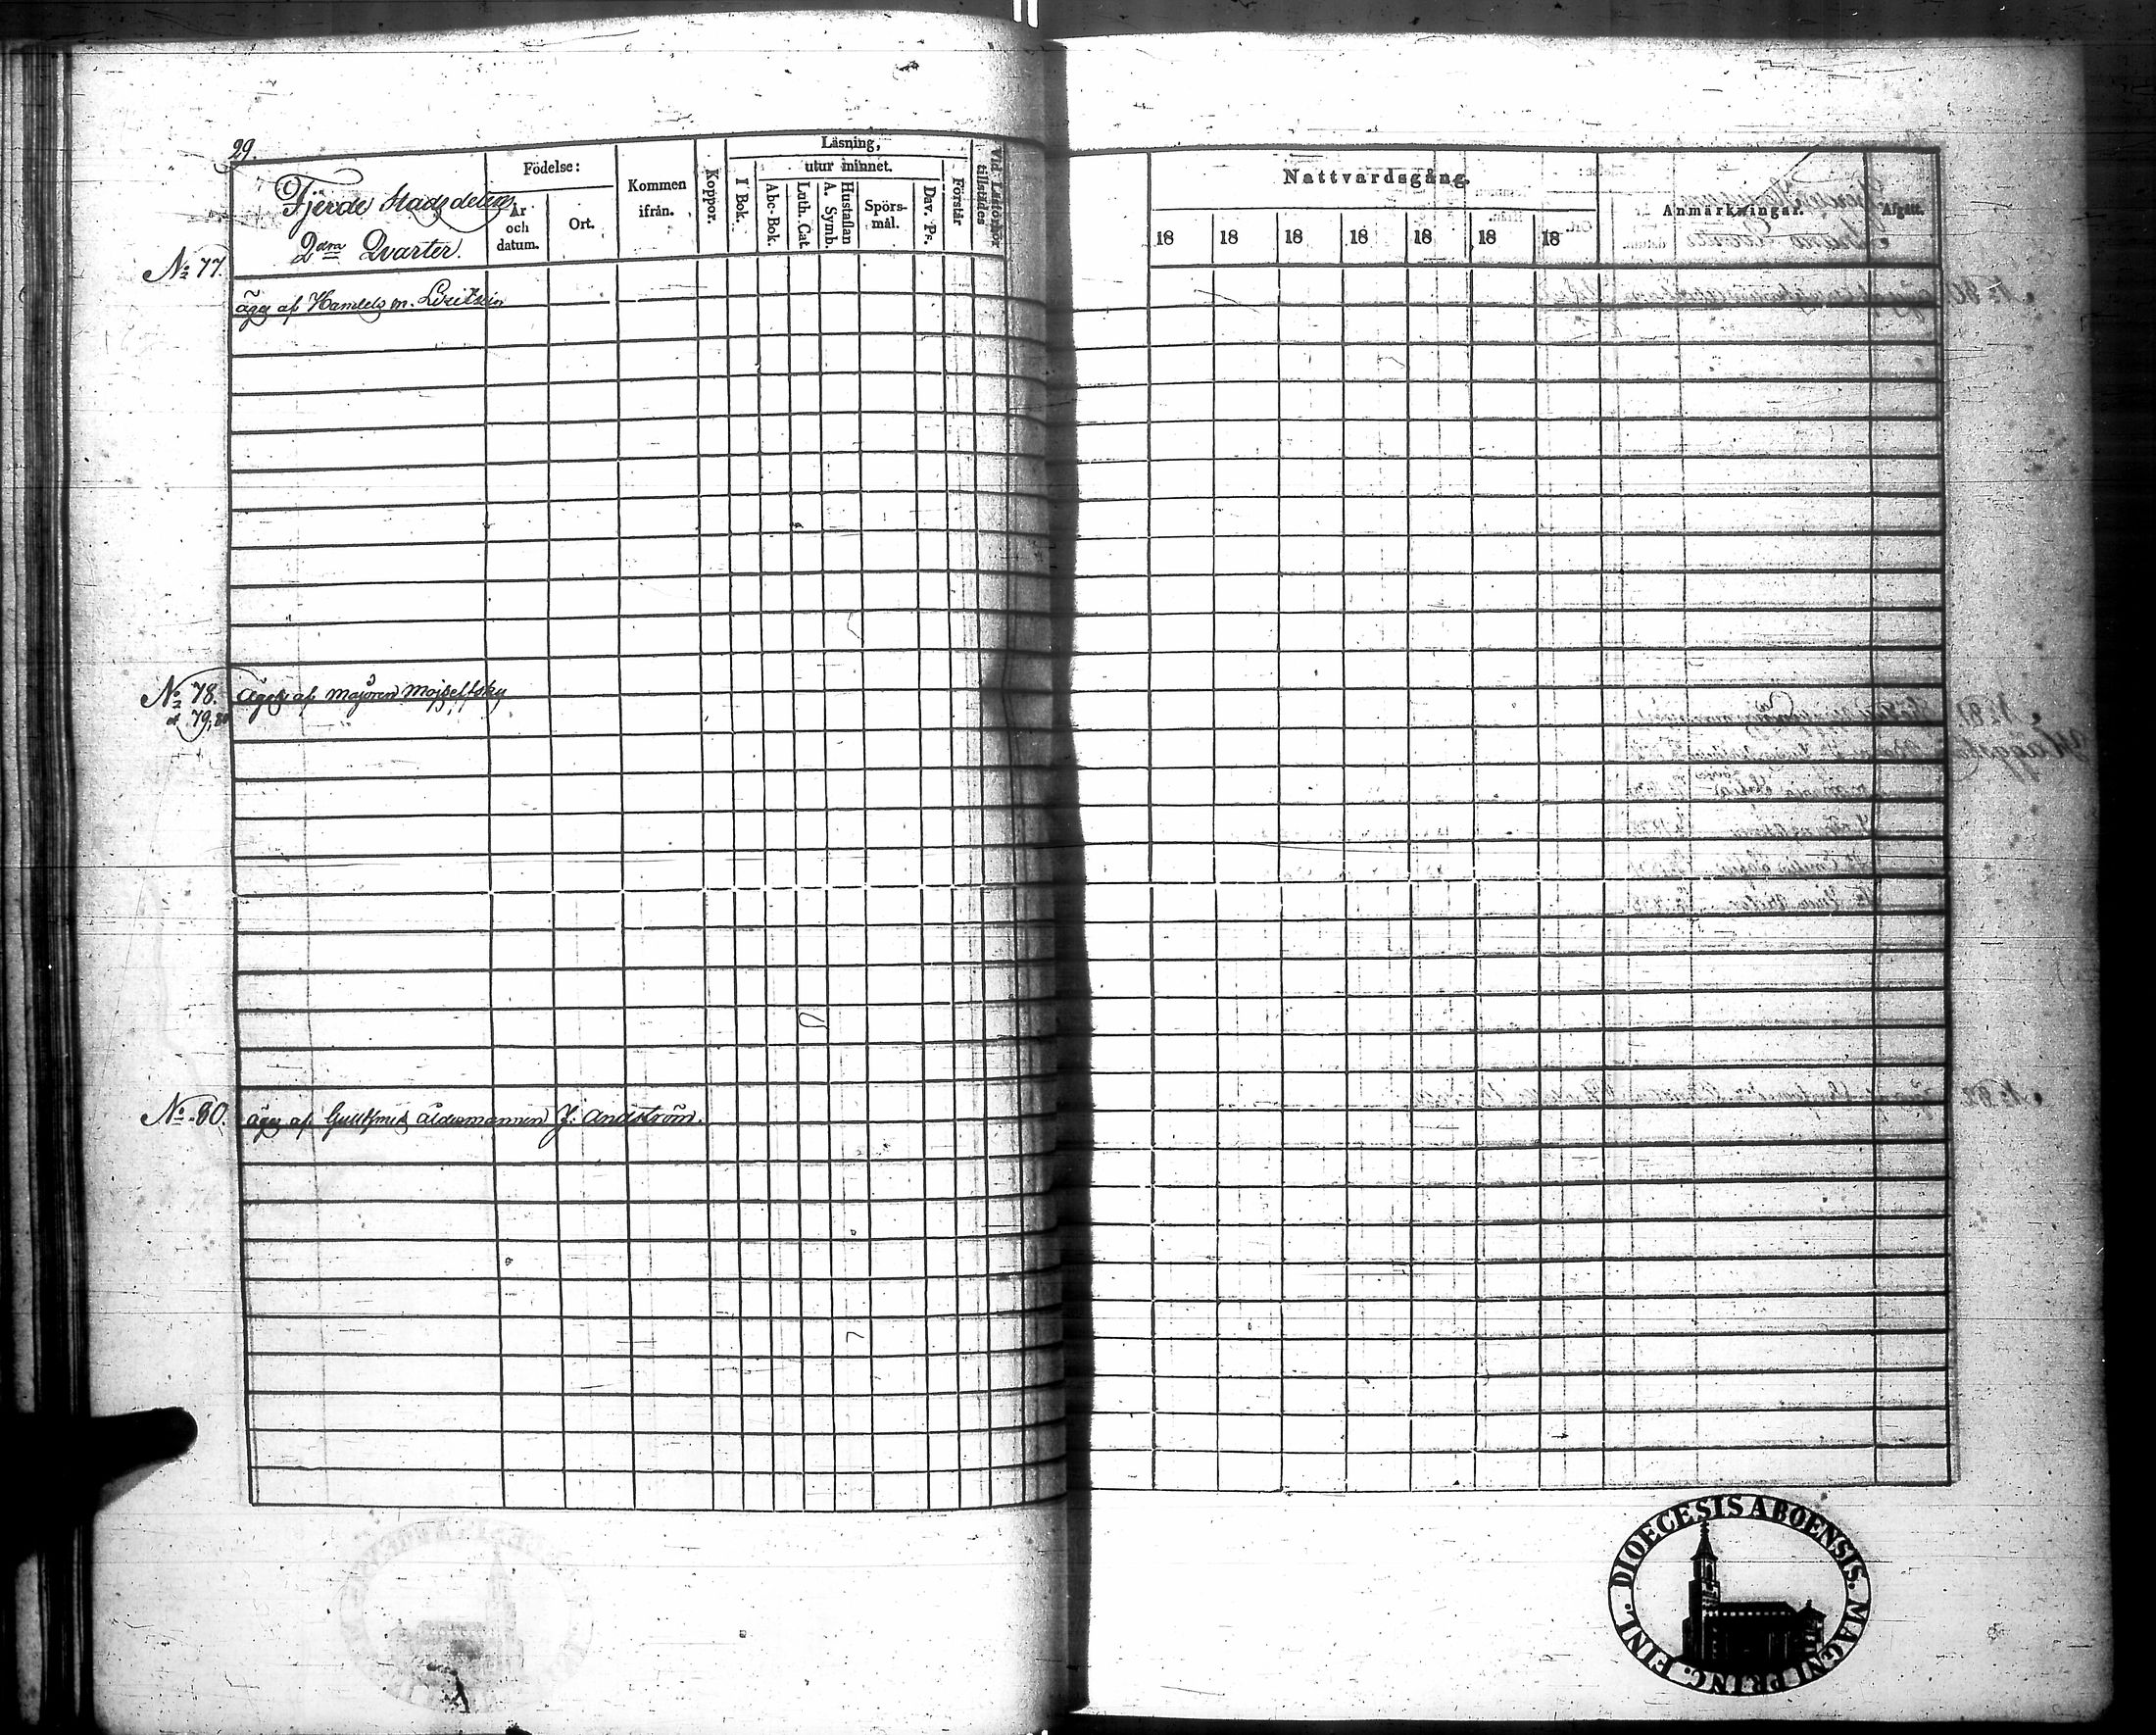 29.
Fjerde Stadsdelen
2dra Qvarter.
Födelse:
År och datum.
Ort.
Kommen ifrån.
Koppor.
Läsning,
I Bok.
utur minnet.
Abc-Bok.
Luth. Cat.
A. Symb.
Hustaflan
Spörs-mål.
Dav. Ps.
Förstår
Vid Läsförhör tillstädes
Nattvardsgång.
18 18 18 18 18 18 18
Anmärkningar.
Afgått.
No 77.
äges af Handels m.
No 78.
et 79, 80
äges af Majoren
No 80.
äges af Guldsmeds åldermannen J. Andström.
DIOECESIS ABOENSIS. MAGNI PRINC. FINL.